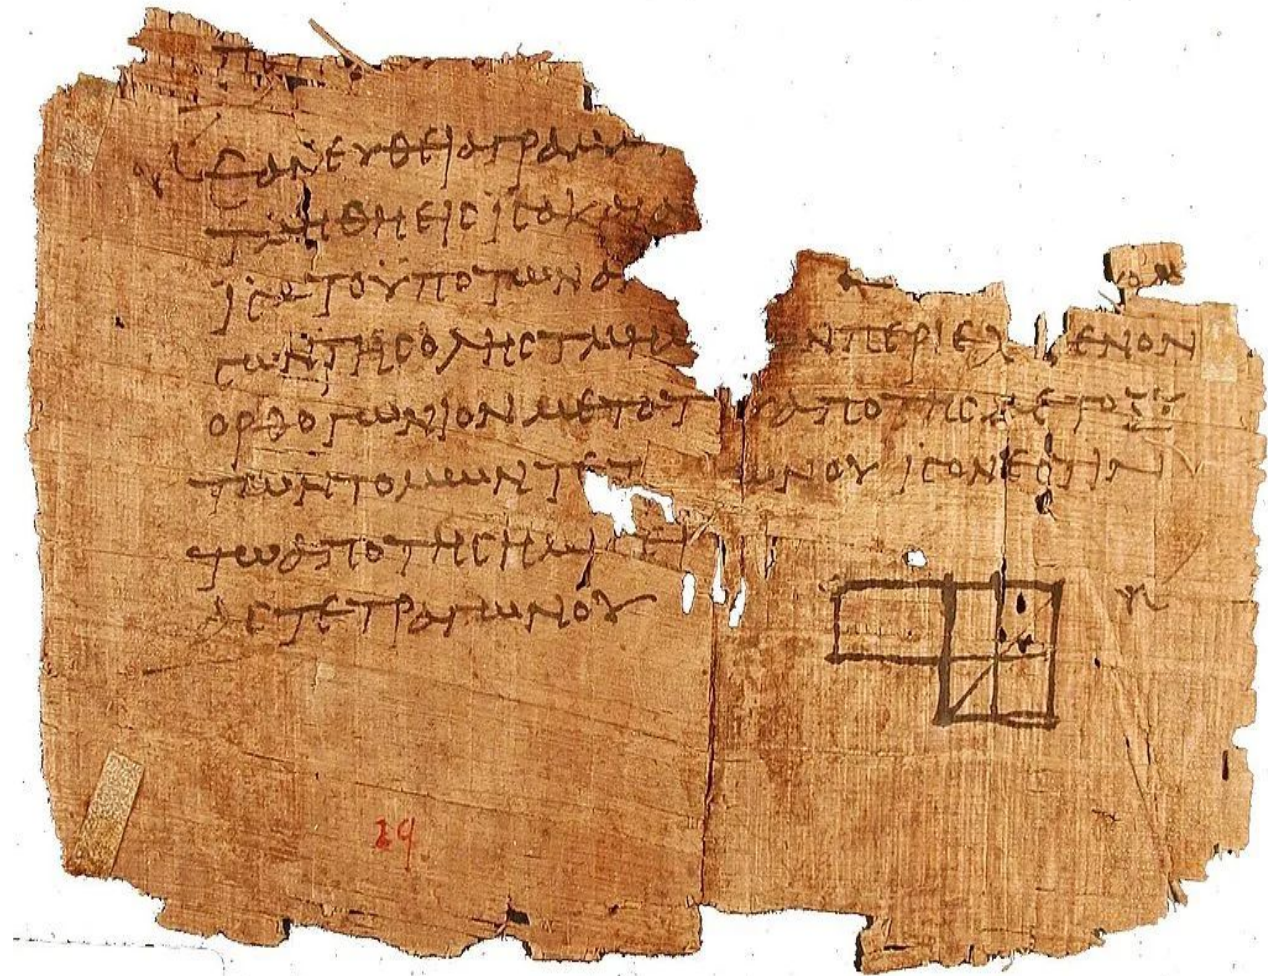 ΕΑΝ ΕΥΘΕΙΑ ΓΡΑΜΜ
ΤΜΗΘΗ ΕΙϹ ΙϹΑ ΚΑΙ ΑΝ
ΙϹΑ ΤΟ ΥΠΟ ΤΩΝ ΑΝ
ΤΩΝ ΤΗϹ ΟΛΗϹ ΤΜΗΜ ΩΝ ΠΕΡΙΕΧ ΜΕΝΟΝ
ΟΡΘΟΓΩΝΙΟΝ ΜΕΤΟ Τ ΑΠΟ ΤΗϹ ΜΕΤΟΞΥ
ΤΩΝ ΤΟΜΩΝ ΤΕΤ ΩΝΟΥ ΙϹΟΝ ΕϹΤΙΝ
ΤΩ ΑΠΟ ΤΗϹ ΗΜΙϹΕΙ
ΑϹ ΤΕΤΡΑΓΩΝΟΥ
29